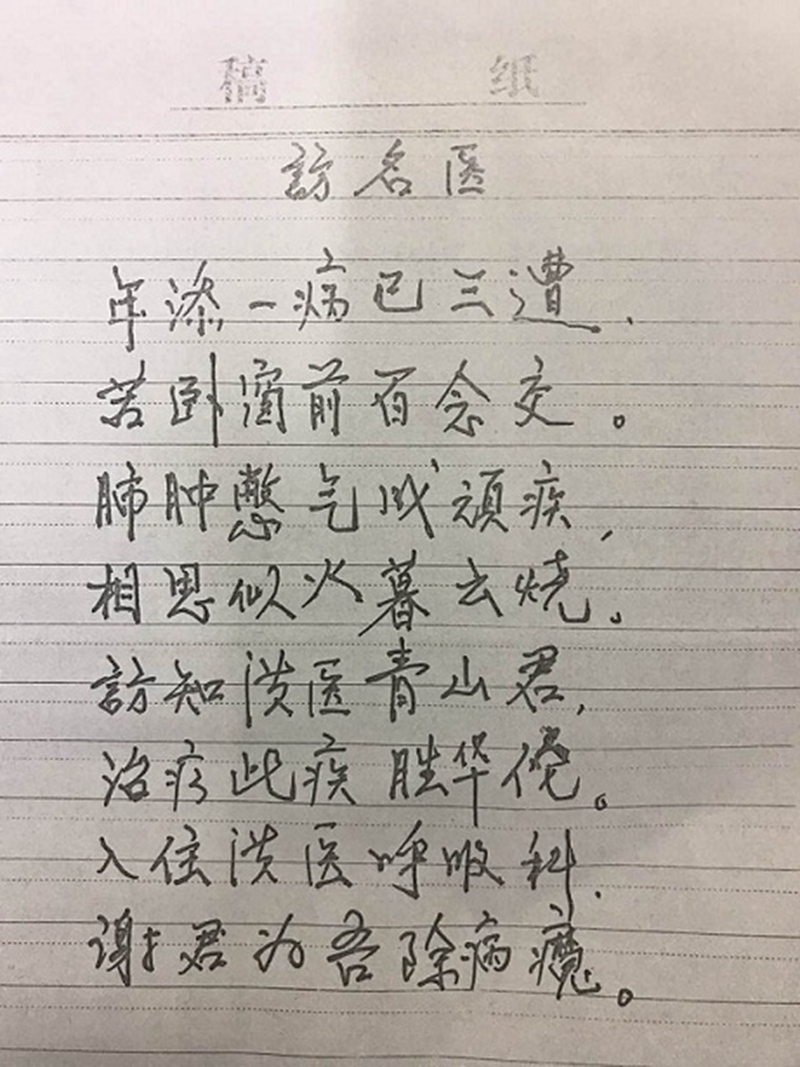 稿 纸
訪名医
年添一病已三遭,
苦卧窗前百念交。
肺肿憋气成顽疾,
相思似火暮云烧。
訪知医青山君,
治疗此疾胜华佗。
入住医呼吸科.
谢君为吾除病魔。